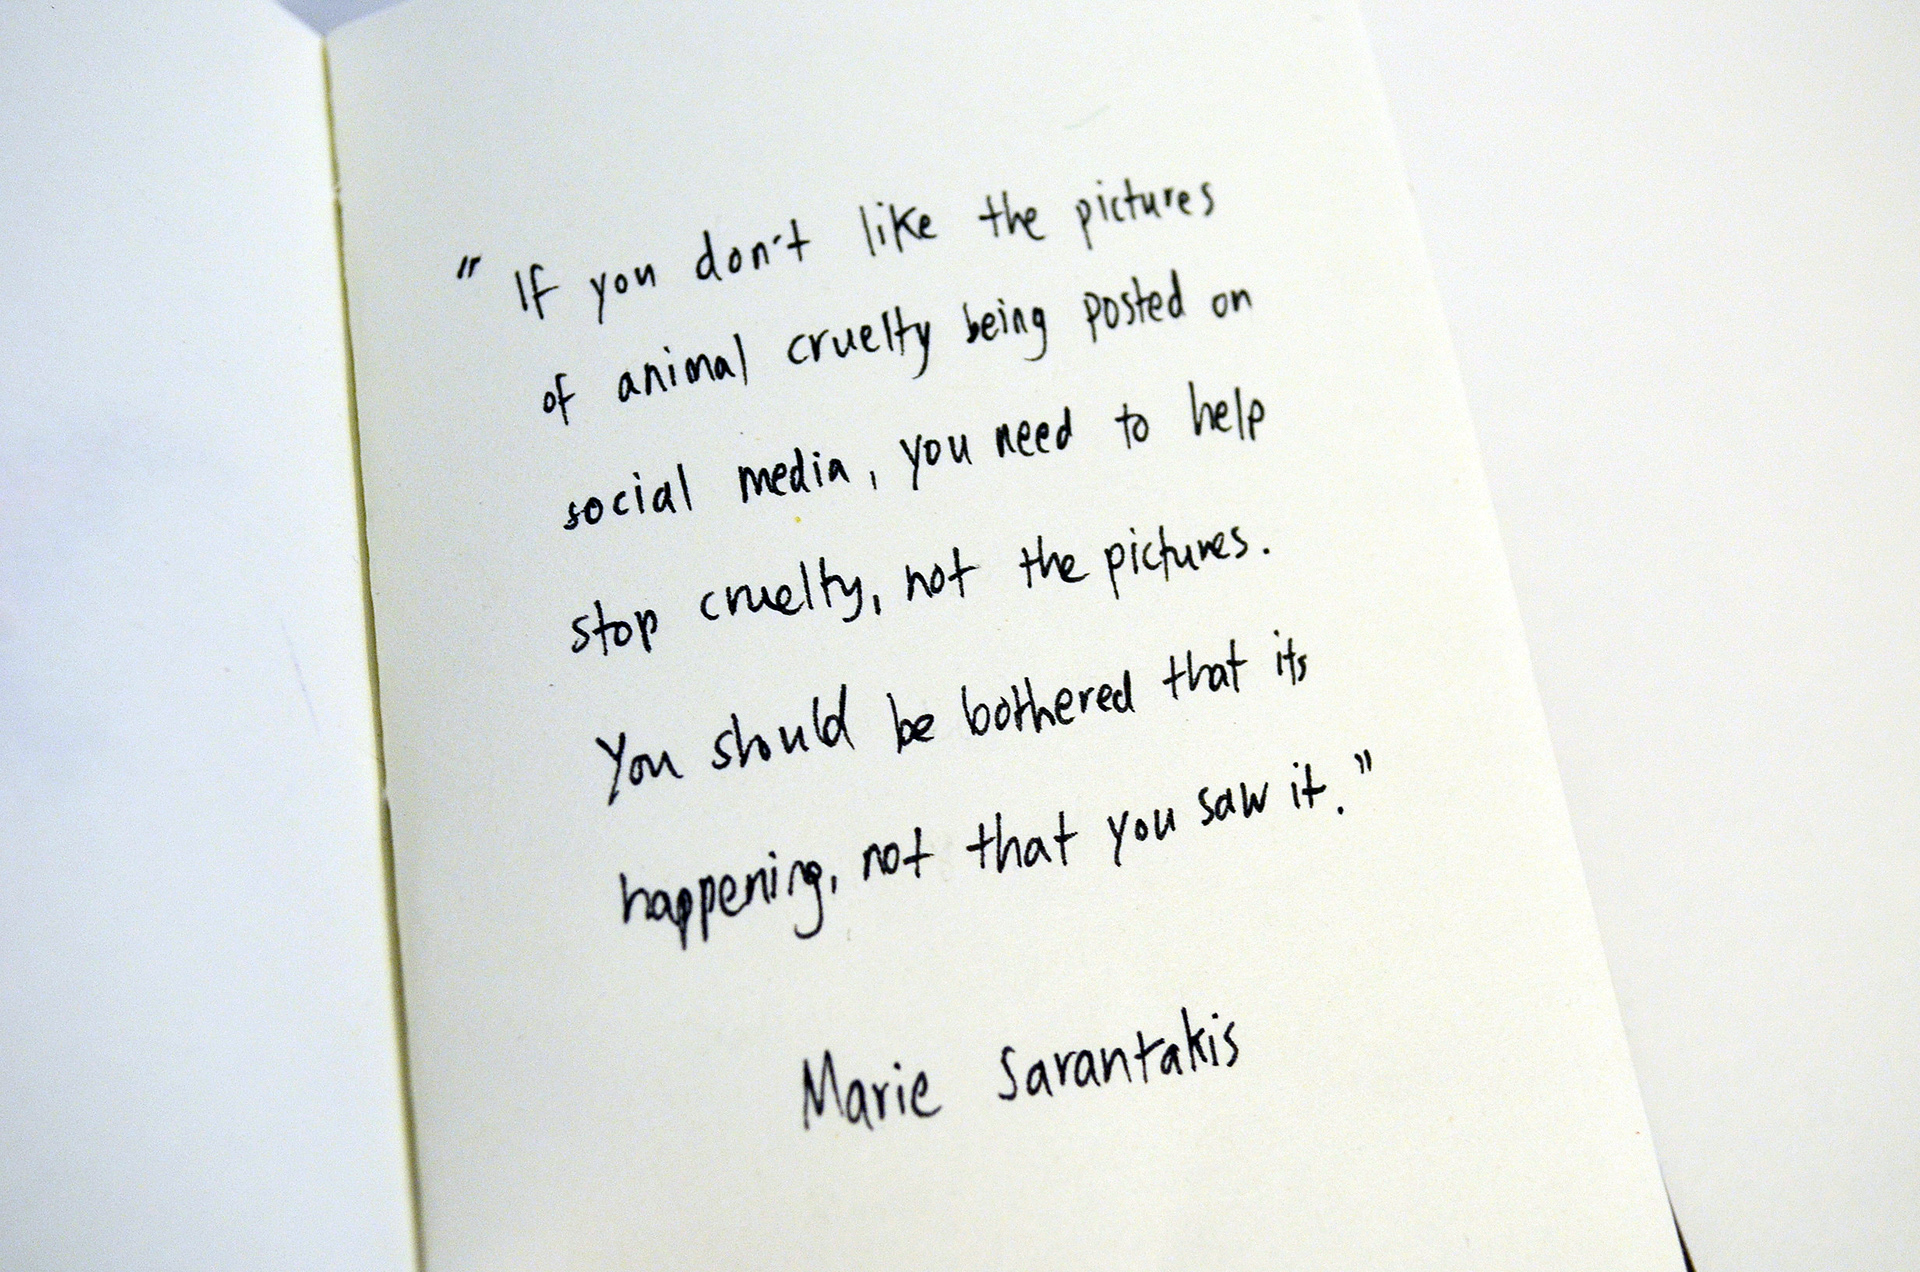 " If you don't like the pictures
of animal cruelty being posted on
social media, you need to help
stop cruelty, not the pictures.
You should be bothered that its
happening, not that you saw it."
Marie Sarantakis